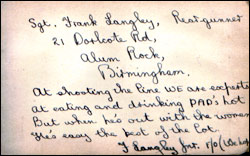 Sgt. Frank Langley, Rear-gunner
21 Dorlcote Rd,
Alum Rock,
Birmingham.
At shooting the line WE are experts
At eating and drinking DAD's hot
But when he's out with the women
He's easy the best of the lot.
F Langley Jnr.